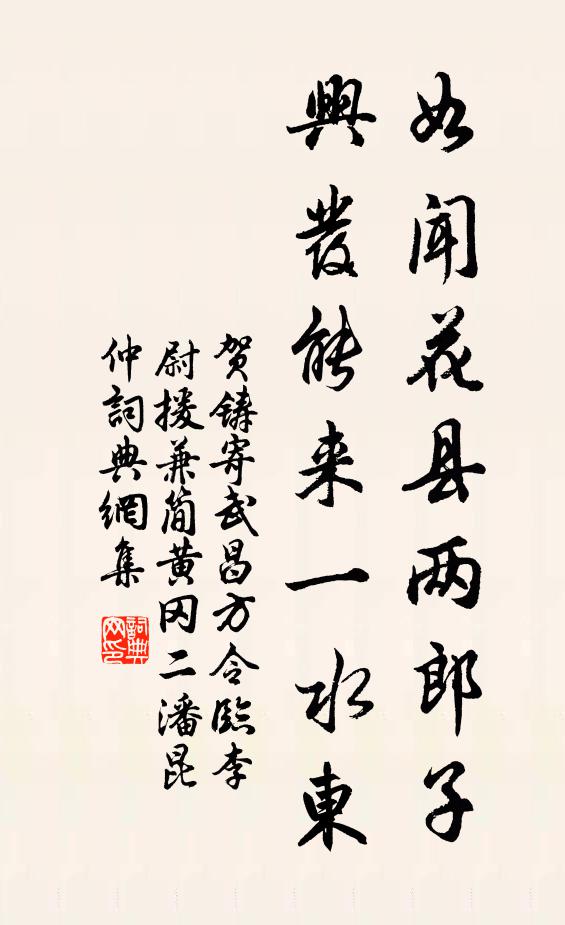 如闻花县两郎子
興發能来一水東
贺鑄寄武昌方令臨李
尉援兼简黄冈二潘昆
仲詞典網集
詞典网印